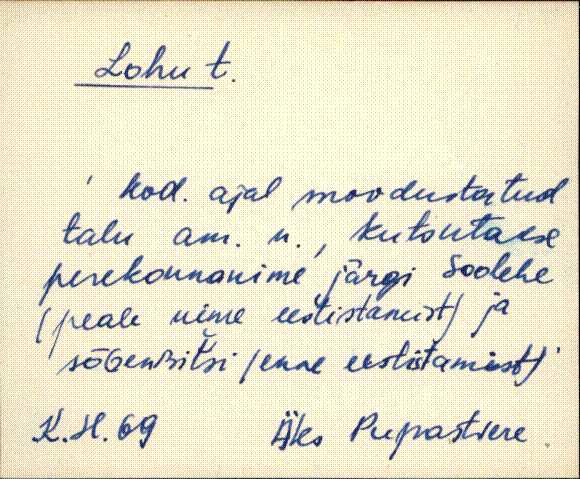 Lohu t.
kod. ajal moodustatud
talu am. n., kutsutakse
perekonnanime järgi Soolehe
(peale nime eestistamist) ja
(enne eestistamist)
K.H. 69 Äks Pupastvere